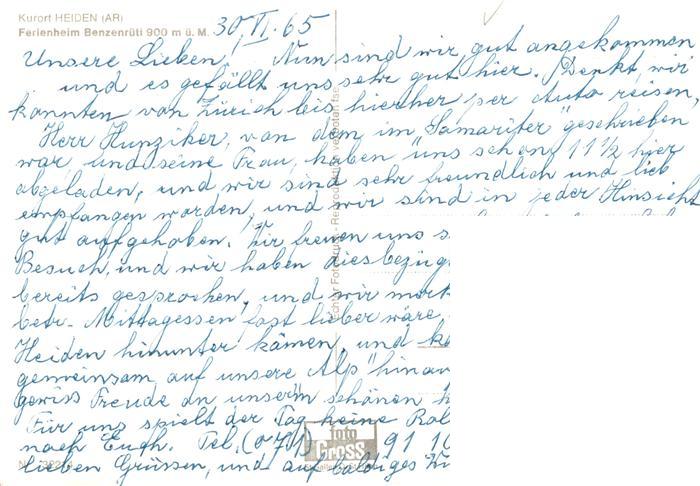 Kurort HEIDEN (AR)
Ferienheim Benzenrüti 900 m ü. M. 30. VI. 65
Unsere Lieben! Nun sind wir gut angekommen
und es gefällt uns sehr gut hier. Denkt, wir
konnten von Zürich bis hierher per Auto reisen,
Herr Hunziker, von dem im "Samariter" geschrieben
war, und seine Frau, haben uns schon 11½ hier
abgeladen, und wir sind sehr freundlich und lieb
empfangen worden, und wir sind in jeder Hinsicht
gut aufgehoben. Wir freuen uns s
Besuch, und wir haben diesbezüg
bereits gesprochen, und wir
betr. Mittagessen fast lieber wäre,
Heiden hinunter kämen, und
gemeinsam auf unsere "Alp" hinau
gewiss Freude an unserm schönen
Für uns spielt der Tag keine Rol
nach Euch. Tel. (071) 91 10
lieben Grüssen, und auf baldiges
foto
Gross